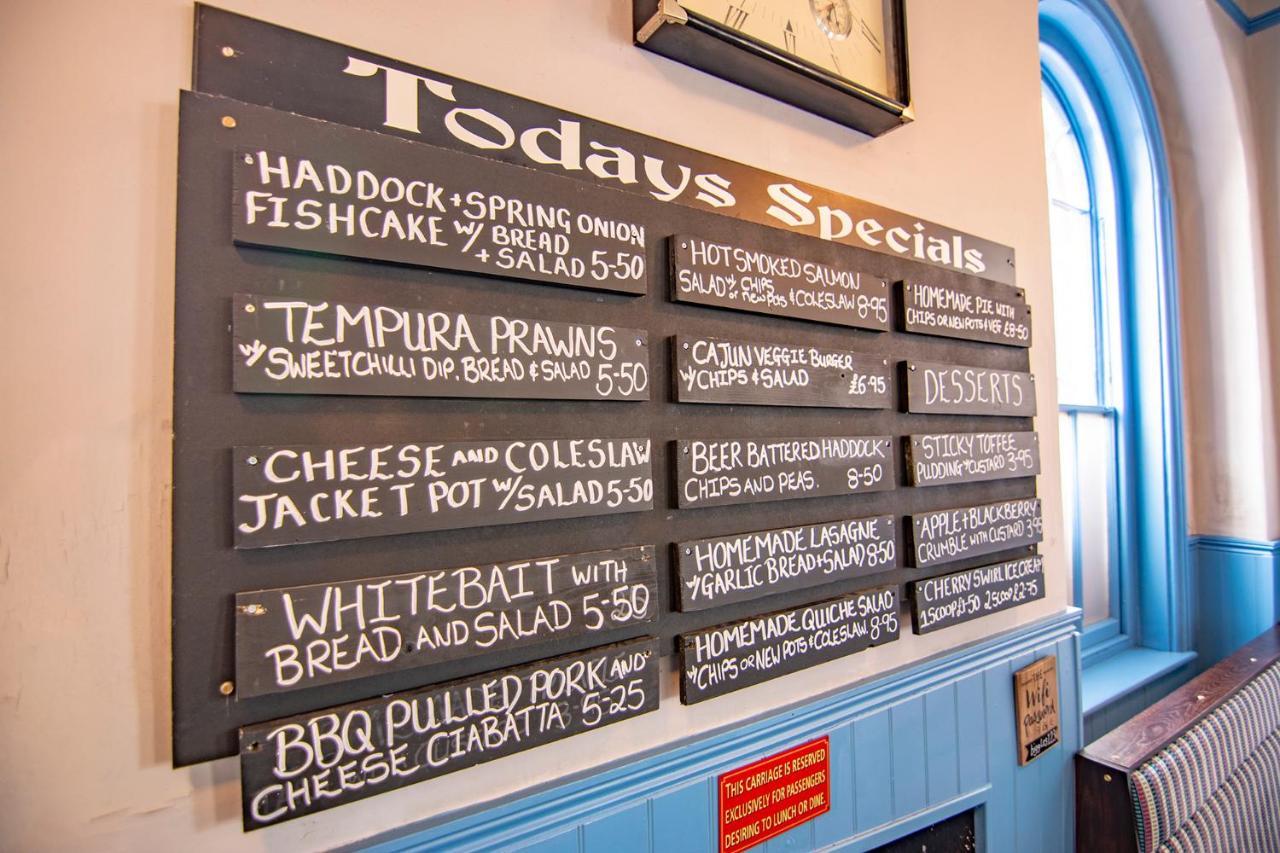 Todays Specials
HADDOCK + SPRING ONION
FISHCAKE W/ BREAD
+ SALAD 5-50
TEMPURA PRAWNS
W/ SWEETCHILLI DIP. BREAD & SALAD 5-50
CHEESE AND COLESLAW
JACKET POT W/ SALAD 5-50
WHITEBAIT WITH
BREAD AND SALAD 5-50
BBQ PULLED PORK AND
CHEESE CIABATTA 5-25
HOT SMOKED SALMON
SALAD W/ CHIPS
or NEW POTS & COLESLAW 8-95
CAJUN VEGGIE BURGER
W/ CHIPS & SALAD £6-95
BEER BATTERED HADDOCK
CHIPS AND PEAS. 8-50
HOMEMADE LASAGNE
W/ GARLIC BREAD + SALAD 8-50
HOMEMADE QUICHE SALAD
W/ CHIPS OR NEW POTS & COLESLAW. 8-95
HOMEMADE PIE WITH
CHIPS OR NEW POTS & VEG £8-50
DESSERTS
STICKY TOFFEE
PUDDING W/ CUSTARD 3-95
APPLE + BLACKBERRY
CRUMBLE WITH CUSTARD 3-95
CHERRY SWIRL ICE CREAM
1 SCOOP £1-50 2 SCOOP £2-75
THIS CARRIAGE IS RESERVED
EXCLUSIVELY FOR PASSENGERS
DESIRING TO LUNCH OR DINE.
THE
Wifi
Password